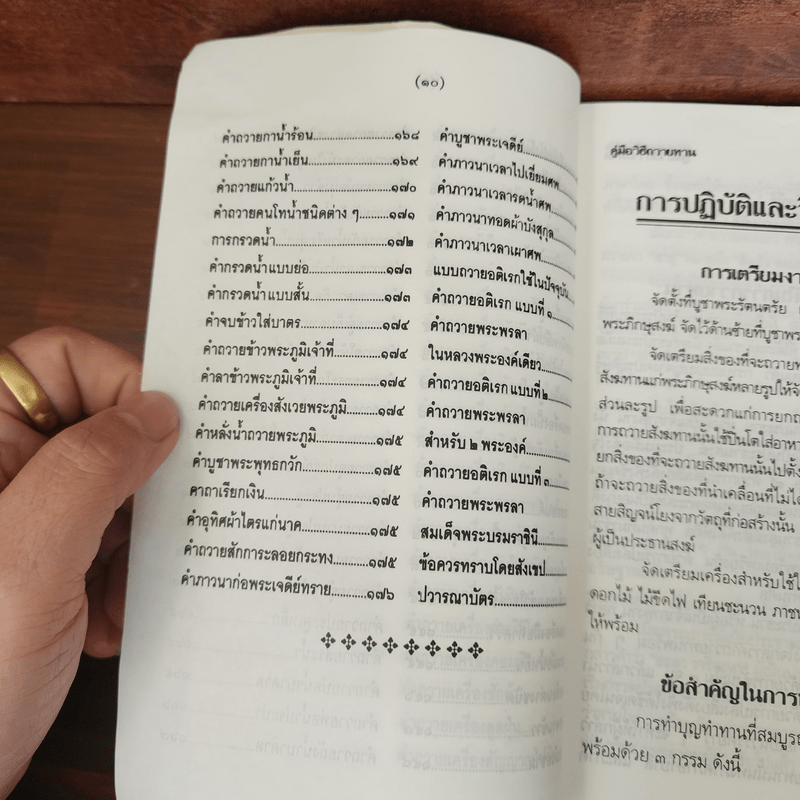 (๑๐)
คำถวายกาน้ำร้อน....................๑๖๘
คำถวายกาน้ำเย็น....................๑๖๙
คำถวายแก้วน้ำ........................๑๗๐
คำถวายคนโทน้ำชนิดต่าง ๆ.......๑๗๑
การกรวดน้ำ............................๑๗๒
คำกรวดน้ำแบบย่อ...................๑๗๓
คำกรวดน้ำแบบสั้น...................๑๗๓
คำจบข้าวใส่บาตร....................๑๗๔
คำถวายข้าวพระภูมิเจ้าที่............๑๗๔
คำลาข้าวพระภูมิเจ้าที่...............๑๗๔
คำถวายเครื่องสังเวยพระภูมิ.......๑๗๔
คำหลั่งน้ำถวายพระภูมิ..............๑๗๕
คำบูชาพระพุทธกวัก.................๑๗๕
คาถาเรียกเงิน.........................๑๗๕
คำอุทิศผ้าไตรแก่นาค...............๑๗๕
คำถวายสักการะลอยกระทง.........๑๗๕
คำภาวนาก่อพระเจดีย์ทราย.........๑๗๖
คำบูชาพระเจดีย์
คำภาวนาเวลาไปเยี่ยมศพ
คำภาวนาเวลารดน้ำศพ
คำภาวนาทอดผ้าบังสุกุล
คำภาวนาเวลาเผาศพ
แบบถวายอติเรกใช้ในปัจจุบัน
คำถวายอติเรก แบบที่ ๑
คำถวายพระพรลา
ในหลวงพระองค์เดียว
คำถวายอติเรก แบบที่ ๒
คำถวายพระพรลา
สำหรับ ๒ พระองค์
คำถวายอติเรก แบบที่ ๓
คำถวายพระพรลา
สมเด็จพระบรมราชินี
ข้อควรทราบโดยสังเขป
ปวารณาบัตร
คู่มือวิธีถวายทาน
การปฏิบัติและ
การเตรียมงา
จัดตั้งที่บูชาพระรัตนตรัย
พระภิกษุสงฆ์ จัดไว้ด้านซ้ายที่บูชาพร
จัดเตรียมสิ่งของที่จะถวายพ
สังฆทานแก่พระภิกษุสงฆ์หลายรูปให้จั
ส่วนละรูป เพื่อสะดวกแก่การยกถ
การถวายสังฆทานนั้นใช้ปิ่นโตใส่อาหา
ยกสิ่งของที่จะถวายสังฆทานนั้นไปตั้ง
ถ้าจะถวายสิ่งของที่นำเคลื่อนที่ไม่ได้
สายสิญจน์โยงจากวัตถุที่ก่อสร้างนั้น
ผู้เป็นประธานสงฆ์
จัดเตรียมเครื่องสำหรับใช้ใ
ดอกไม้ ไม้ขีดไฟ เทียนชะนวน ภาชน
ให้พร้อม
ข้อสำคัญในการ
การทำบุญทำทานที่สมบูรณ
พร้อมด้วย ๓ กรรม ดังนี้